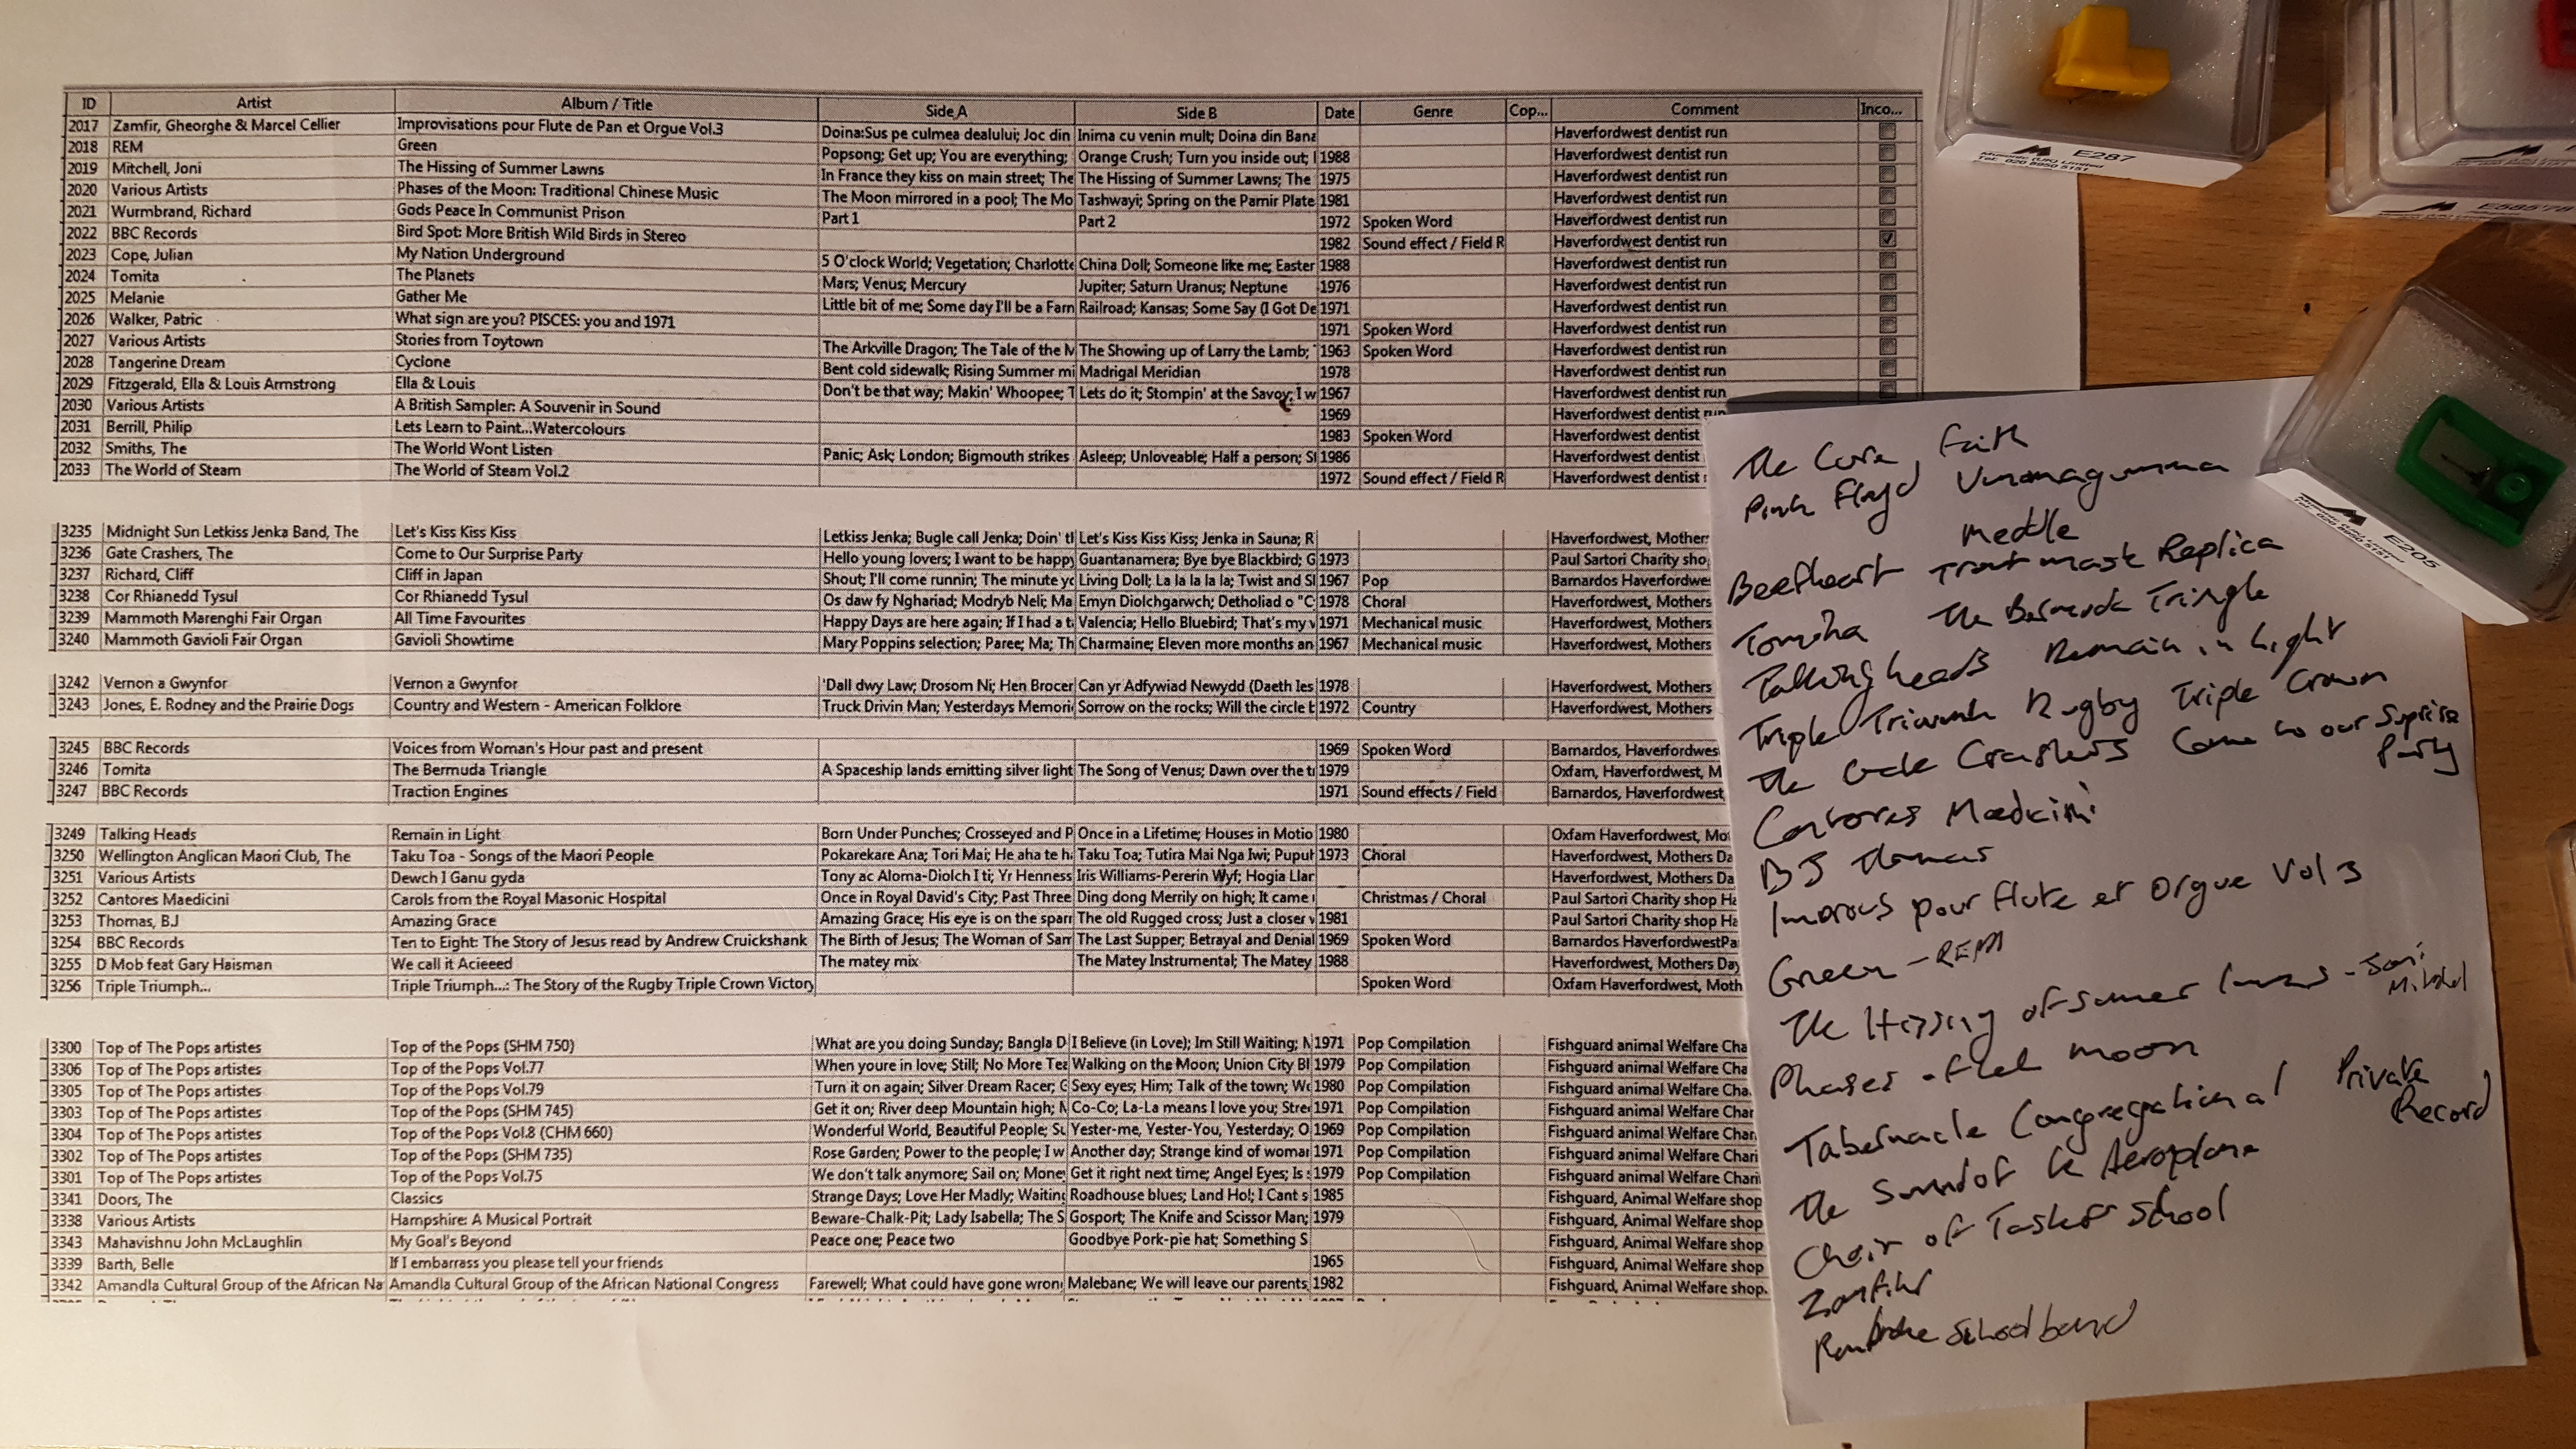 ID Artist Album / Title Side A Side B Date Genre Cop... Comment Inco...
2017 Zamfir, Gheorghe & Marcel Cellier Improvisations pour Flute de Pan et Orgue Vol.3 Doina:Sus pe culmea dealului; Joc din Inima cu venin mult; Doina din Bana Haverfordwest dentist run
2018 REM Green Popsong; Get up; You are everything; Orange Crush; Turn you inside out; 1988 Haverfordwest dentist run
2019 Mitchell, Joni The Hissing of Summer Lawns In France they kiss on main street; The The Hissing of Summer Lawns; The 1975 Haverfordwest dentist run
2020 Various Artists Phases of the Moon: Traditional Chinese Music The Moon mirrored in a pool; The Mo Tashwayi; Spring on the Pamir Plate 1981 Haverfordwest dentist run
2021 Wurmbrand, Richard Gods Peace In Communist Prison Part 1 Part 2 1972 Spoken Word Haverfordwest dentist run
2022 BBC Records Bird Spot: More British Wild Birds in Stereo 1982 Sound effect / Field R Haverfordwest dentist run
2023 Cope, Julian My Nation Underground 5 O'clock World; Vegetation; Charlotte China Doll; Someone like me; Easter 1988 Haverfordwest dentist run
2024 Tomita The Planets Mars; Venus; Mercury Jupiter; Saturn Uranus; Neptune 1976 Haverfordwest dentist run
2025 Melanie Gather Me Little bit of me; Some day I'll be a Farm Railroad; Kansas; Some Say (I Got De 1971 Haverfordwest dentist run
2026 Walker, Patric What sign are you? PISCES: you and 1971 1971 Spoken Word Haverfordwest dentist run
2027 Various Artists Stories from Toytown The Arkville Dragon; The Tale of the M The Showing up of Larry the Lamb; 1963 Spoken Word Haverfordwest dentist run
2028 Tangerine Dream Cyclone Bent cold sidewalk; Rising Summer mi Madrigal Meridian 1978 Haverfordwest dentist run
2029 Fitzgerald, Ella & Louis Armstrong Ella & Louis Don't be that way; Makin' Whoopee; T Lets do it; Stompin' at the Savoy; I w 1967 Haverfordwest dentist run
2030 Various Artists A British Sampler: A Souvenir in Sound 1969 Haverfordwest dentist run
2031 Berrill, Philip Lets Learn to Paint...Watercolours 1983 Spoken Word Haverfordwest dentist
2032 Smiths, The The World Wont Listen Panic; Ask; London; Bigmouth strikes Asleep; Unloveable; Half a person; S 1986 Haverfordwest dentist
2033 The World of Steam The World of Steam Vol.2 1972 Sound effect / Field R Haverfordwest dentist
3235 Midnight Sun Letkiss Jenka Band, The Let's Kiss Kiss Kiss Letkiss Jenka; Bugle call Jenka; Doin' tl Let's Kiss Kiss Kiss; Jenka in Sauna; R Haverfordwest, Mother
3236 Gate Crashers, The Come to Our Surprise Party Hello young lovers; I want to be happy Guantanamera; Bye bye Blackbird; G 1973 Paul Sartori Charity sho
3237 Richard, Cliff Cliff in Japan Shout; I'll come runnin; The minute yo Living Doll; La la la la la; Twist and Sl 1967 Pop Barnardos Haverfordwe
3238 Cor Rhianedd Tysul Cor Rhianedd Tysul Os daw fy Nghariad; Modryb Neli; Ma Emyn Diolchgarwch; Detholiad o "C 1978 Choral Haverfordwest, Mothers
3239 Mammoth Marenghi Fair Organ All Time Favourites Happy Days are here again; If I had a t Valencia; Hello Bluebird; That's my v 1971 Mechanical music Haverfordwest, Mothers
3240 Mammoth Gavioli Fair Organ Gavioli Showtime Mary Poppins selection; Paree; Ma; Th Charmaine; Eleven more months an 1967 Mechanical music Haverfordwest, Mothers
3242 Vernon a Gwynfor Vernon a Gwynfor 'Dall dwy Law; Drosom Ni; Hen Brocer Can yr Adfywiad Newydd (Daeth Ies 1978 Haverfordwest, Mothers
3243 Jones, E. Rodney and the Prairie Dogs Country and Western - American Folklore Truck Drivin Man; Yesterdays Memori Sorrow on the rocks; Will the circle b 1972 Country Haverfordwest, Mothers
3245 BBC Records Voices from Woman's Hour past and present 1969 Spoken Word Barnardos, Haverfordwes
3246 Tomita The Bermuda Triangle A Spaceship lands emitting silver light The Song of Venus; Dawn over the tr 1979 Oxfam, Haverfordwest, M
3247 BBC Records Traction Engines 1971 Sound effects / Field Barnardos, Haverfordwest
3249 Talking Heads Remain in Light Born Under Punches; Crosseyed and P Once in a Lifetime; Houses in Motio 1980 Oxfam Haverfordwest, Mo
3250 Wellington Anglican Maori Club, The Taku Toa - Songs of the Maori People Pokarekare Ana; Tori Mai; He aha te h Taku Toa; Tutira Mai Nga Iwi; Pupuh 1973 Choral Haverfordwest, Mothers Da
3251 Various Artists Dewch I Ganu gyda Tony ac Aloma-Diolch I ti; Yr Henness Iris Williams-Pererin Wyf; Hogia Llar Haverfordwest, Mothers Da
3252 Cantores Maedicini Carols from the Royal Masonic Hospital Once in Royal David's City; Past Three Ding dong Merrily on high; It came Christmas / Choral Paul Sartori Charity shop Ha
3253 Thomas, B.J Amazing Grace Amazing Grace; His eye is on the sparr The old Rugged cross; Just a closer v 1981 Paul Sartori Charity shop Ha
3254 BBC Records Ten to Eight: The Story of Jesus read by Andrew Cruickshank The Birth of Jesus; The Woman of Sam The Last Supper; Betrayal and Denial 1969 Spoken Word Barnardos HaverfordwestPa
3255 D Mob feat Gary Haisman We call it Acieeed The matey mix The Matey Instrumental; The Matey 1988 Haverfordwest, Mothers Day
3256 Triple Triumph... Triple Triumph...: The Story of the Rugby Triple Crown Victory Spoken Word Oxfam Haverfordwest, Moth
3300 Top of The Pops artistes Top of the Pops (SHM 750) What are you doing Sunday; Bangla D I Believe (in Love); Im Still Waiting; M 1971 Pop Compilation Fishguard animal Welfare Cha
3306 Top of The Pops artistes Top of the Pops Vol.77 When youre in love; Still; No More Tea Walking on the Moon; Union City Bl 1979 Pop Compilation Fishguard animal Welfare Cha
3305 Top of The Pops artistes Top of the Pops Vol.79 Turn it on again; Silver Dream Racer; G Sexy eyes; Him; Talk of the town; Wo 1980 Pop Compilation Fishguard animal Welfare Cha
3303 Top of The Pops artistes Top of the Pops (SHM 745) Get it on; River deep Mountain high; M Co-Co; La-La means I love you; Stre 1971 Pop Compilation Fishguard animal Welfare Char
3304 Top of The Pops artistes Top of the Pops Vol.8 (CHM 660) Wonderful World, Beautiful People; Su Yester-me, Yester-You, Yesterday; O 1969 Pop Compilation Fishguard animal Welfare Char
3302 Top of The Pops artistes Top of the Pops (SHM 735) Rose Garden; Power to the people; I w Another day; Strange kind of woman 1971 Pop Compilation Fishguard animal Welfare Chari
3301 Top of The Pops artistes Top of the Pops Vol.75 We don't talk anymore; Sail on; Mone Get it right next time; Angel Eyes; Is 1979 Pop Compilation Fishguard animal Welfare Chari
3341 Doors, The Classics Strange Days; Love Her Madly; Waiting Roadhouse blues; Land Ho!; I Cant s 1985 Fishguard, Animal Welfare shop
3338 Various Artists Hampshire: A Musical Portrait Beware-Chalk-Pit; Lady Isabella; The S Gosport; The Knife and Scissor Man; 1979 Fishguard, Animal Welfare shop
3343 Mahavishnu John McLaughlin My Goal's Beyond Peace one; Peace two Goodbye Pork-pie hat; Something S Fishguard, Animal Welfare shop
3339 Barth, Belle If I embarrass you please tell your friends 1965 Fishguard, Animal Welfare shop
3342 Amandla Cultural Group of the African Na Amandla Cultural Group of the African National Congress Farewell; What could have gone wron Malebane; We will leave our parents 1982 Fishguard, Animal Welfare shop.
The Cure, Faith
Pink Floyd Ummagumma
Meddle
Beefheart Trout mask Replica
Tomita The Bermuda Triangle
Talking heads Remain in Light
Triple Triumph Rugby Triple Crown
The Gate Crashers Come to our Suprise
Party
Cantores Maedicini
BJ Thomas
Improvs pour flute et Orgue Vol 3
Green - REM
The Hissing of Summer lawns - Joni
Mitchel
Phases of the moon
Tabernacle Congregational Private
Record
The Sound of the Aeroplane
Choir of Taskers School
Zamfir
Pembroke School band
E287
Tel: 020 8950 5151
E205